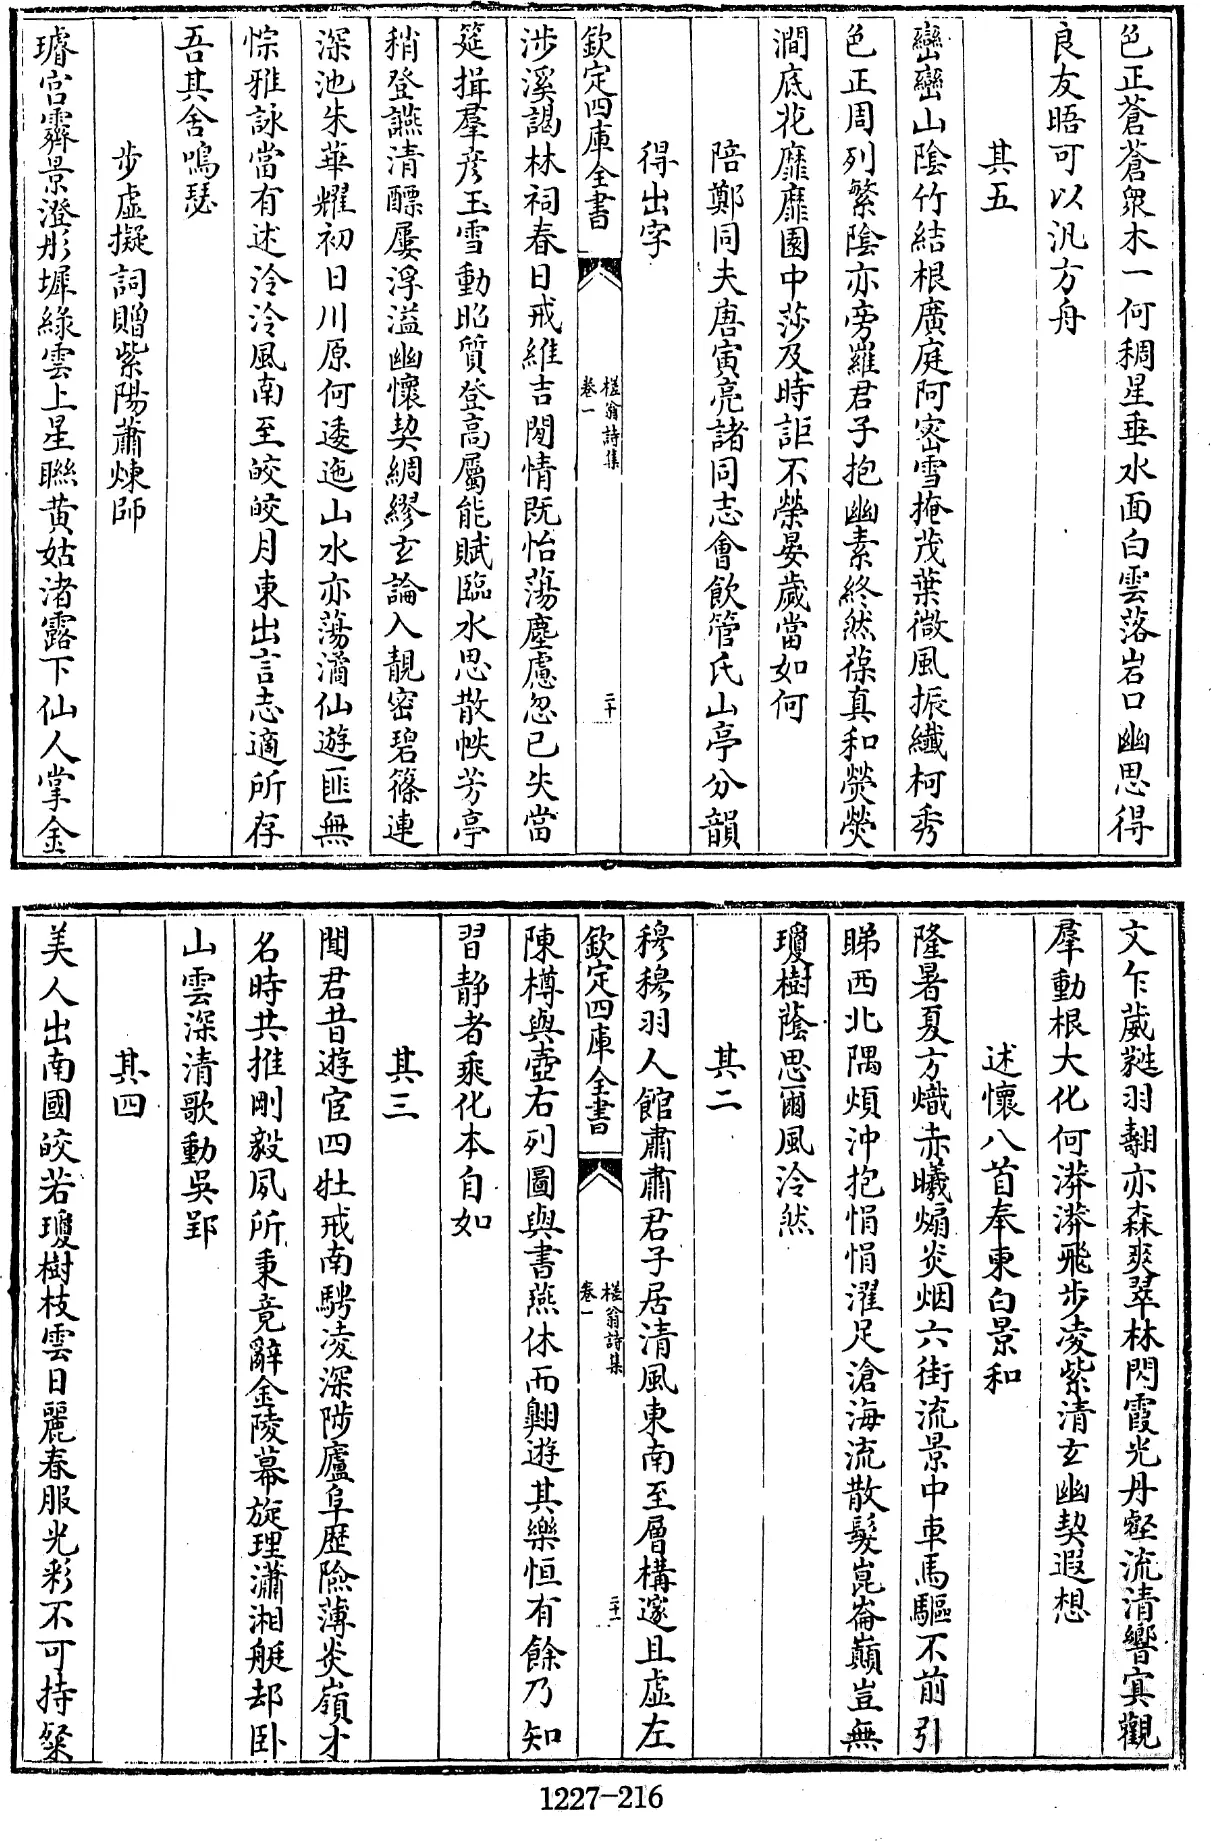 色正蒼蒼衆木一何稠星垂水面白雲落岩口幽思得
良友晤可以汎方舟
其五
巒巒山陰竹結根廣庭阿密雪掩茂葉微風振纖柯秀
色正周列繁陰亦旁羅君子抱幽素終然葆真和熒熒
澗底花靡靡園中莎及時詎不榮晏歲當如何
陪鄭同夫唐寅亮諸同志會飲管氏山亭分韻
得出字
欽定四庫全書
槎翁詩集
卷一
二十
涉溪謁林祠春日戒維吉閒情既怡蕩塵慮忽已失當
筵揖羣彥玉雪動昭質登高屬能賦臨水思散帙芳亭
稍登讌清醥屢浮溢幽懷契綢繆玄論入靚密碧篠連
深池朱華耀初日川原何逶迤山水亦蕩潏仙遊匪無
悰雅詠當有述泠泠風南至皎皎月東出言志適所存
吾其舍鳴瑟
步虛擬詞贈紫陽蕭煉師
璿宮霽景澄彤墀綠雲上星聯黄姑渚露下仙人掌金
文乍葳蕤羽翿亦森爽翠林閃霞光丹壑流清響寘觀
羣動根大化何漭漭飛步凌紫清玄幽契遐想
述懷八首奉東白景和
隆暑夏方熾赤曦煽炎烟六街流景中車馬驅不前引
睇西北隅煩沖抱悁悁濯足滄海流散髮崑崙巔豈無
瓊樹蔭思爾風泠然
其二
穆穆羽人館肅肅君子居清風東南至層構邃且虛左
欽定四庫全書
槎翁詩集
卷一
二十一
陳樽與壺右列圖與書燕休而翺遊其樂恒有餘乃知
習靜者乘化本自如
其三
聞君昔遊宦四牡戒南騁凌深陟廬阜歷險薄炎嶺才
名時共推剛毅夙所秉竟辭金陵幕旋理瀟湘艇却卧
山雲深清歌動吳郢
其四
美人出南國皎若瓊樹枝雲日麗春服光彩不可持粲
1227-216